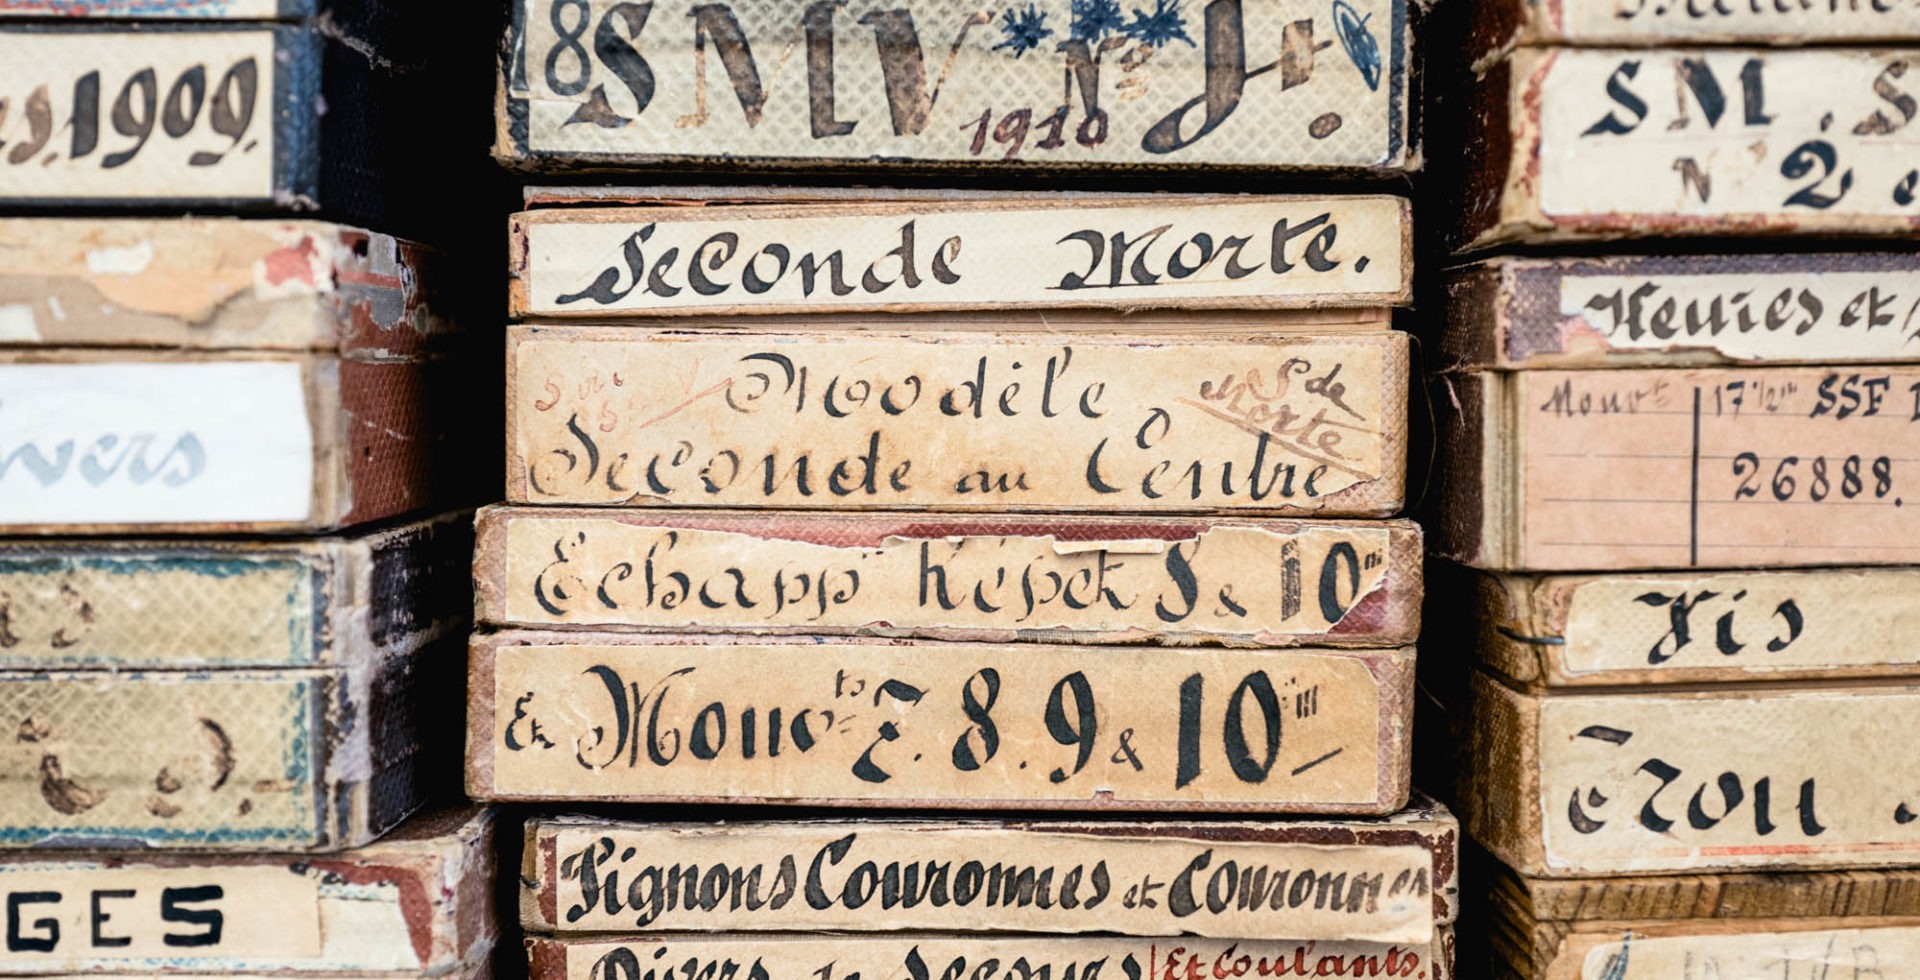 1909.
vers
GES
18 SMV
1910
Seconde Morte.
Modèle
Seconde au Centre
Sde
morte
Echappts Répét 8 & 10 m
& Mouvts 7. 8. 9 & 10 m
Pignons Couronnes et Couronnes
Divers de Secours Et Coulants.
SM. S
No 2 e
et
Mouvt 17 1/2 m SSF
26888.
Vis